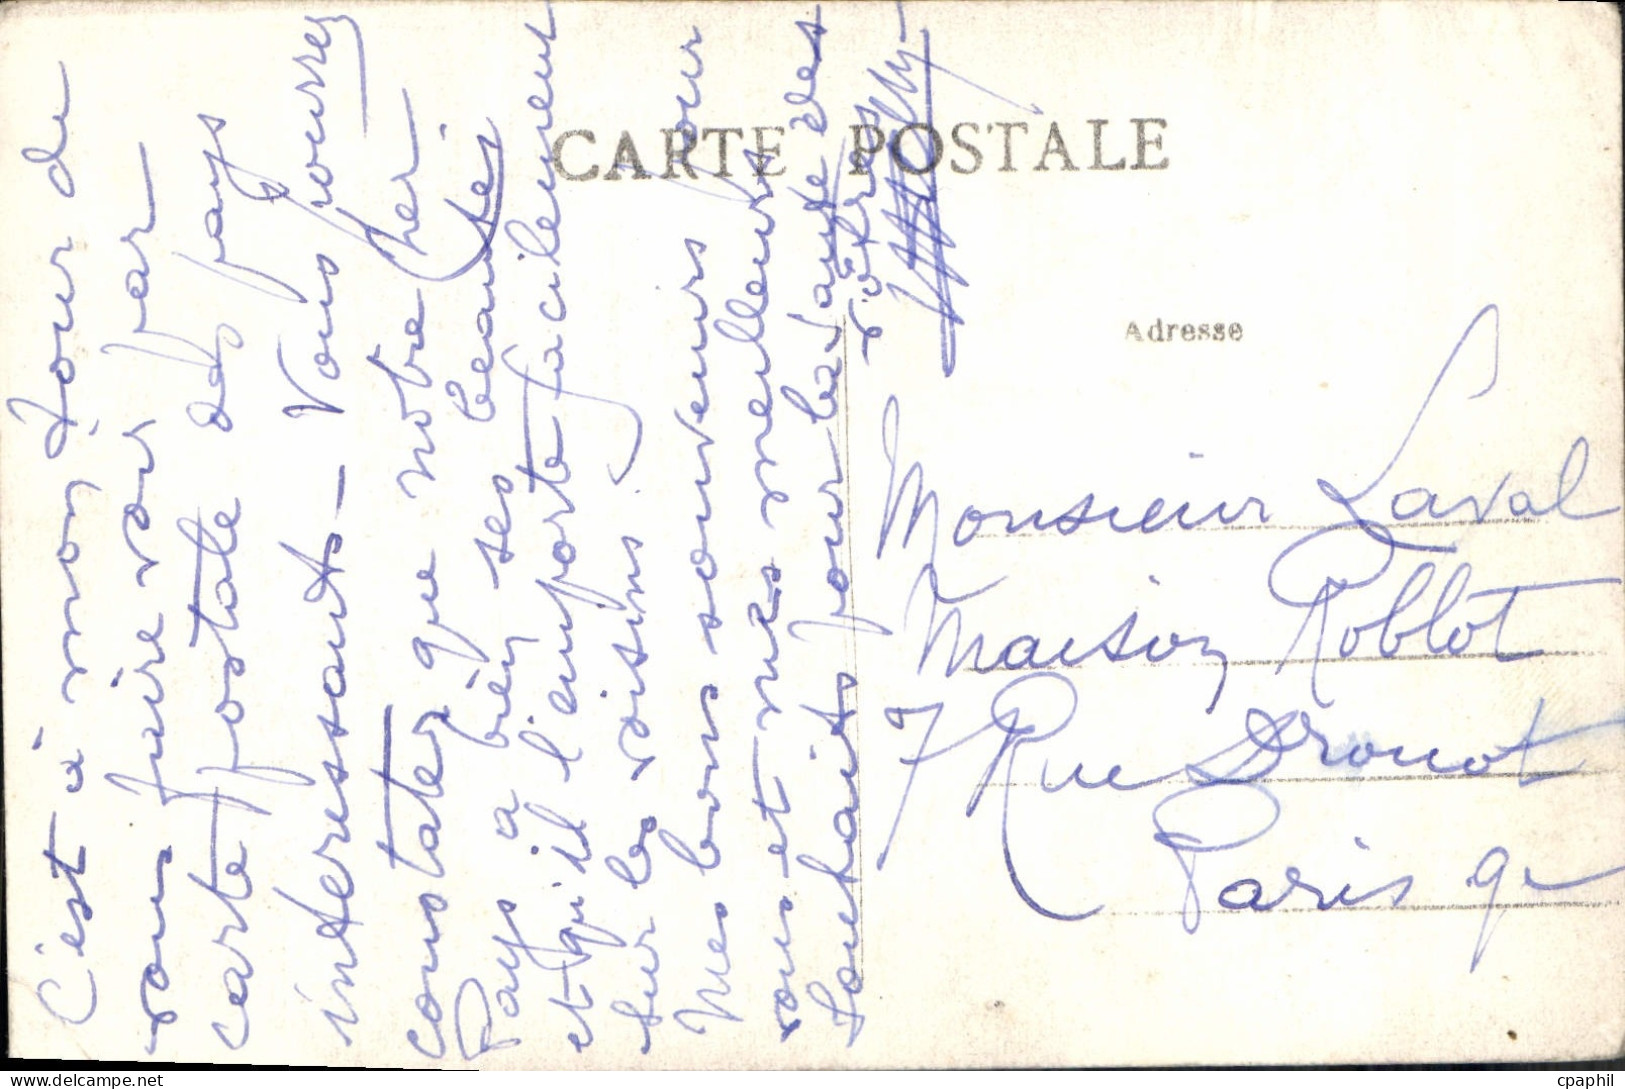 CARTE POSTALE
Adresse
C'est à mon tour de
vous faire voir par
carte postale des pays
interessants - Vous pourrez
constater que notre cher
Pays a bien ses beautés
et qu'il l'emporte facilement
sur les voisins.
Mes bons souvenirs pour
vous et mes meilleurs
souhaits pour la santé des
vôtres
Monsieur Laval
Maison Roblot
7 Rue Drouot
Paris 9e
www.delcampe.net
cpaphil